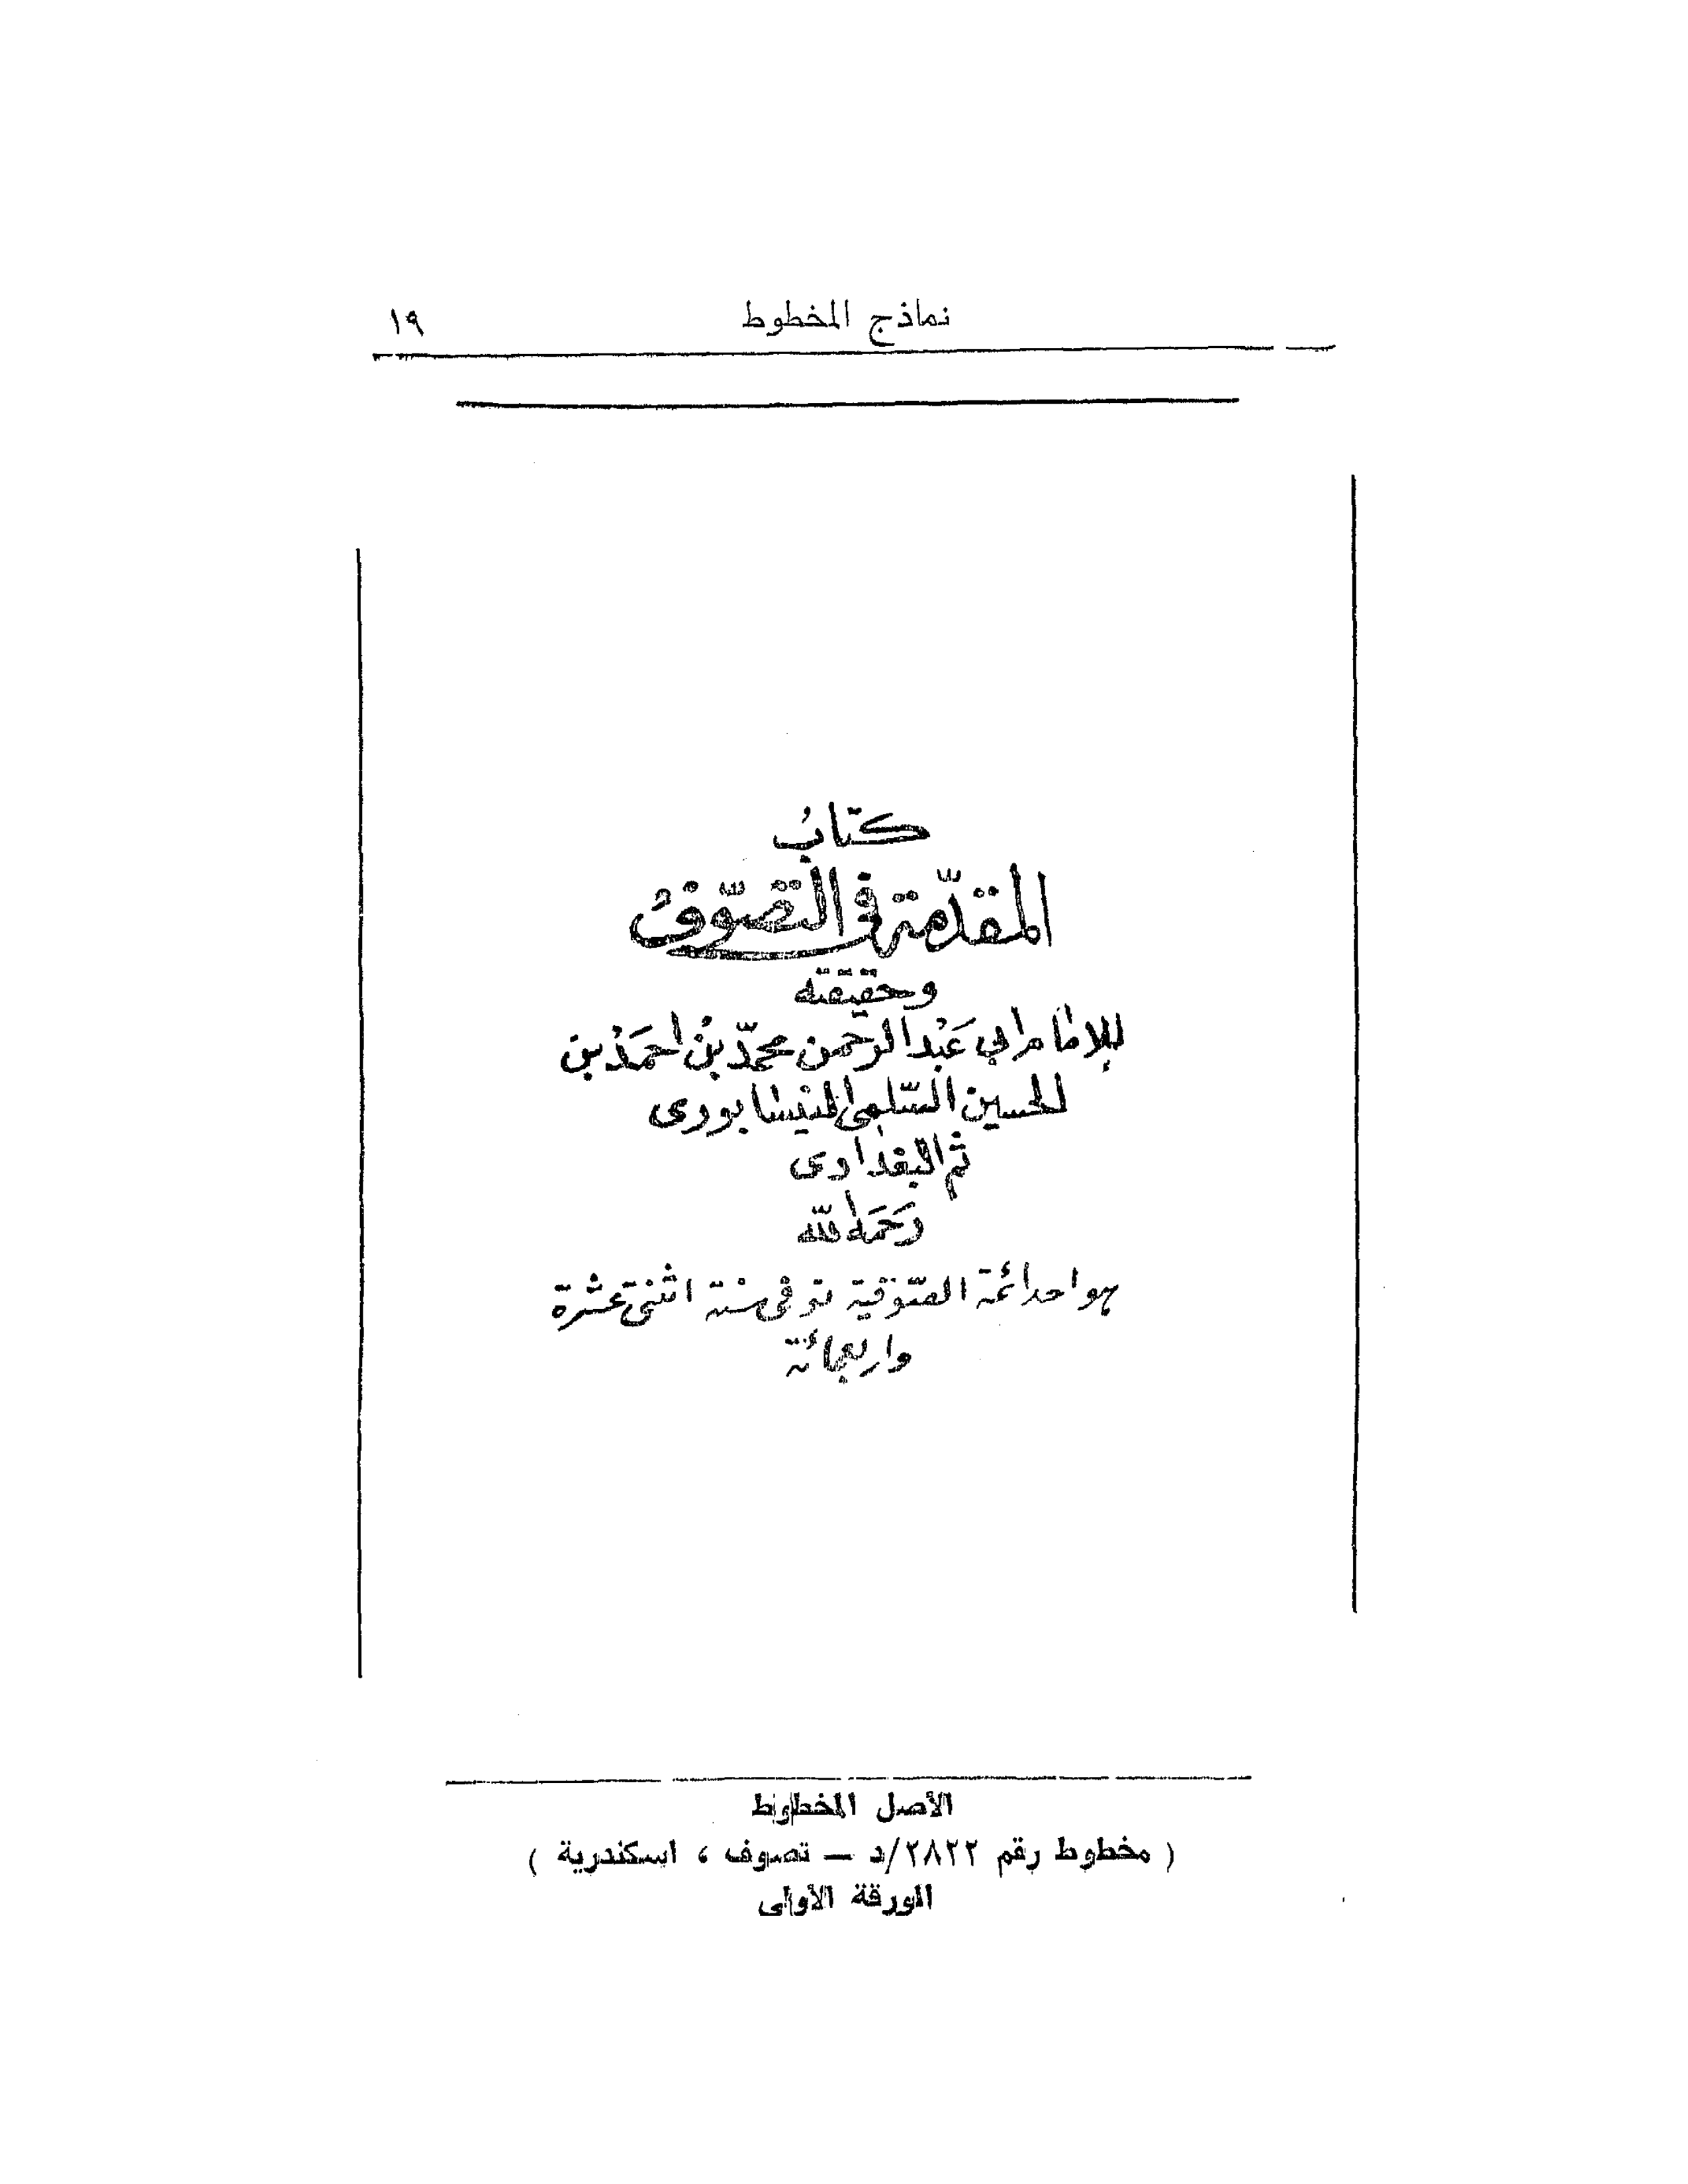 نماذج المخطوط ١٩
كتابُ
المقدّمة في التصوّف
وحقيقته
للإمام ابي عَبْد الرحمن محمّد بْن احمَدْ بن
الحسين السّلمى النيسابورى
ثم البغدادى
رَحمَه الله
هو احد ائمة الصّوفية توفى سنة اثنتى عشرة
واربعمائة
الأصل المخطوط
( مخطوط رقم ٢٨٢٢/د — تصوف ، اسكندرية )
الورقة الأولى